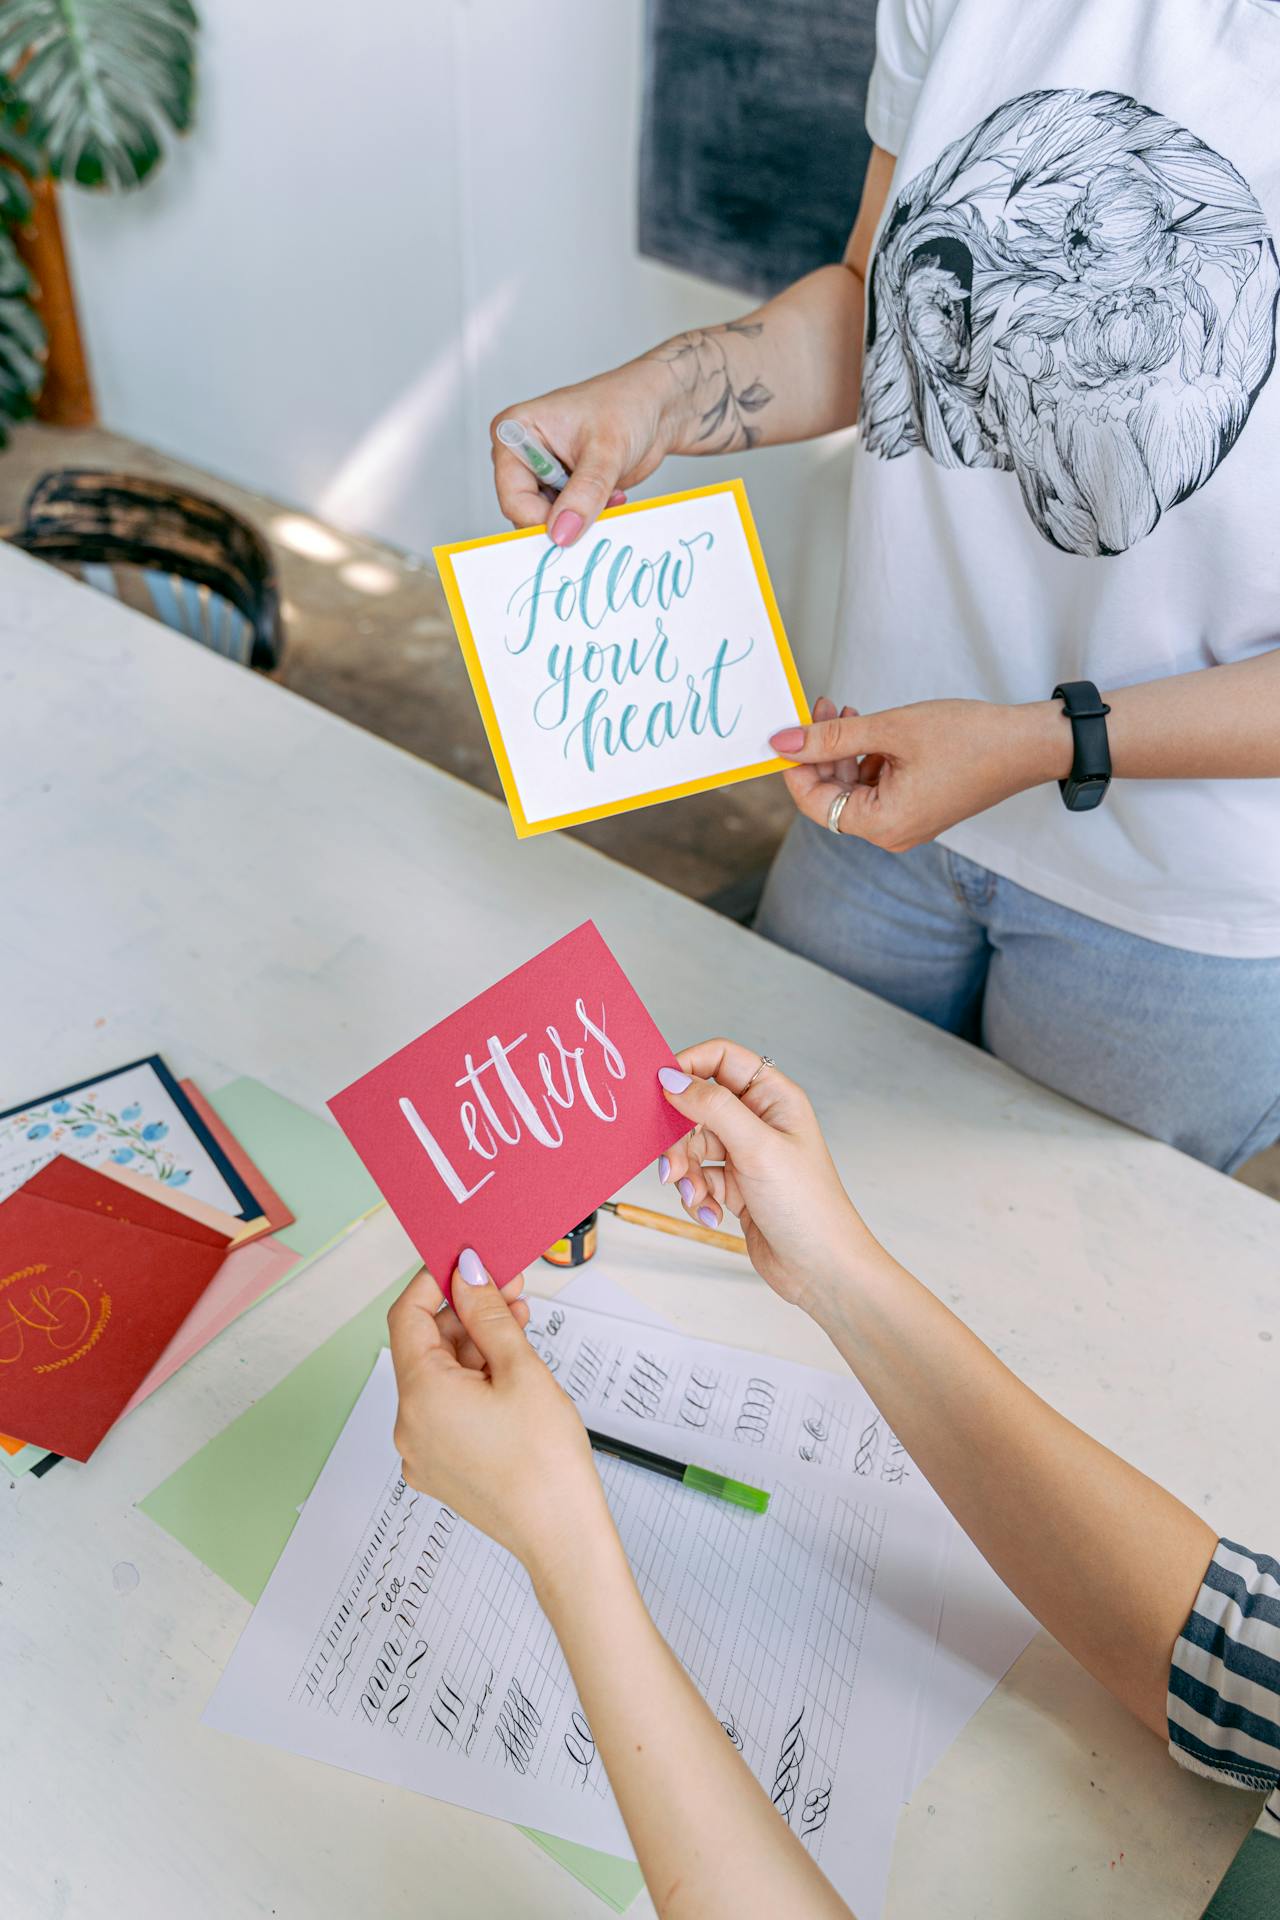 follow
your
heart
Letters
AB